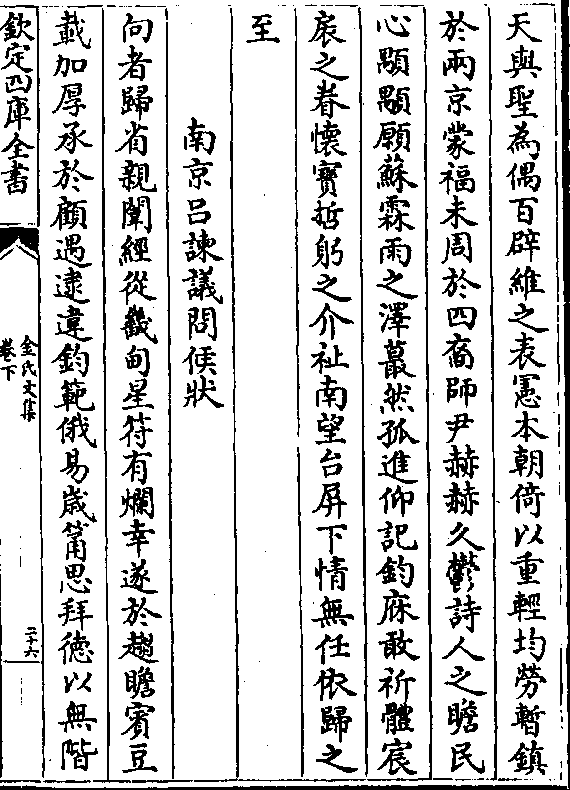 天與聖為偶百辟維之表憲本朝倚以重輕均勞暫鎮
於兩京蒙福未周於四裔師尹赫赫久鬱詩人之瞻民
心顒顒願蘇霖雨之澤蕞然孤進仰記鈞庥敢祈體宸
扆之眷懷寳哲躬之介祉南望台屏下情無任依歸之
至
南京呂諫議問候狀
向者歸省親闈經從畿甸星符有爛幸遂於趨瞻賓豆
載加厚承於顧遇逮違鈞範俄易嵗籥思拜德以無階
欽定四庫全書
金氏文集
卷下
二十六